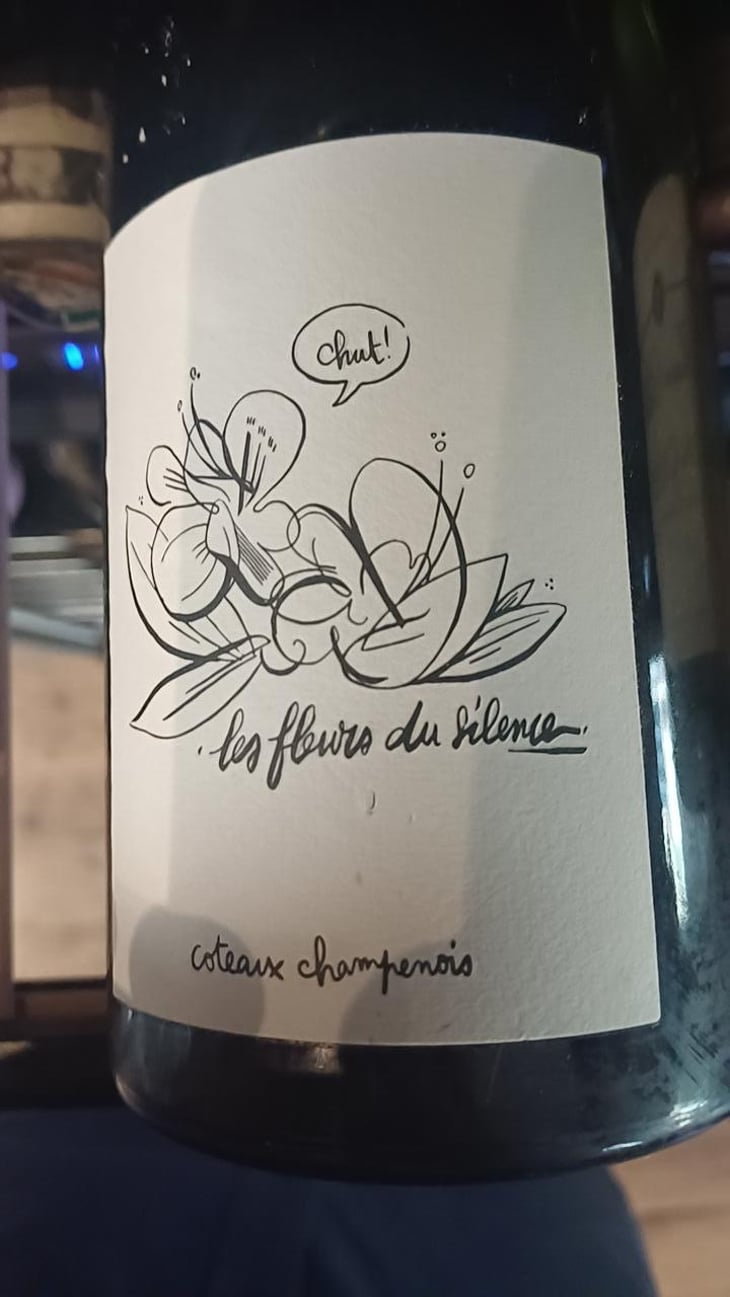 chut!
les fleurs du silence
coteaux champenois